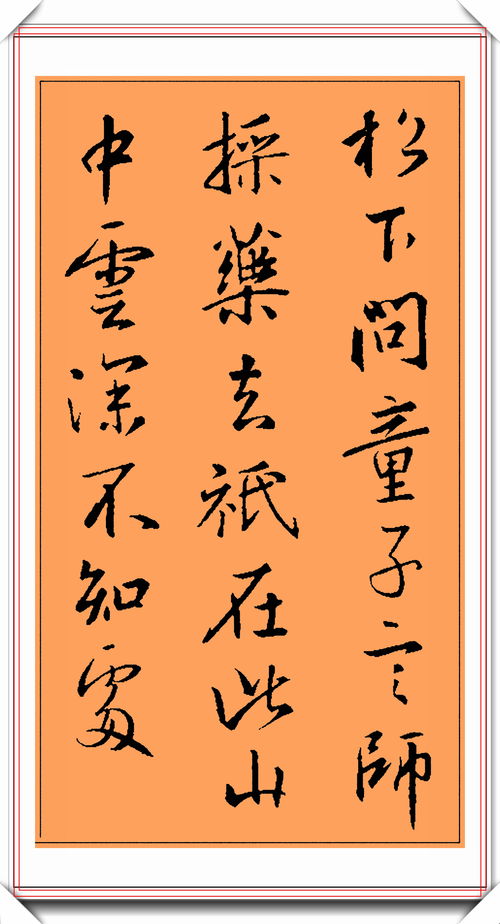 松下問童子言師
採藥去祇在此山
中雲深不知處